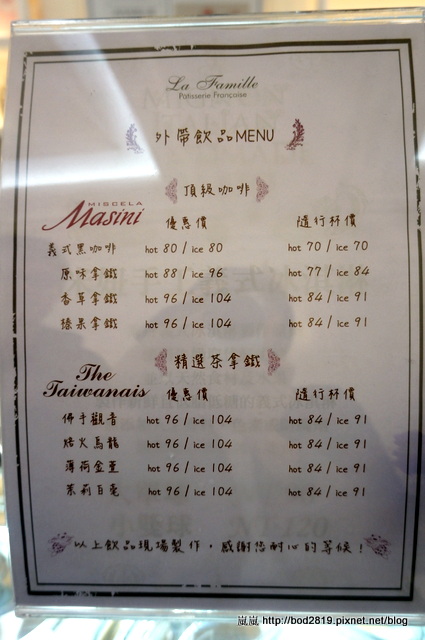 La Famille
Patisserie Française
外帶飲品MENU
頂級咖啡
MISCELA
Masini 優惠價 隨行杯價
義式黑咖啡 hot 80 / ice 80 hot 70 / ice 70
原味拿鐵 hot 88 / ice 96 hot 77 / ice 84
香草拿鐵 hot 96 / ice 104 hot 84 / ice 91
榛果拿鐵 hot 96 / ice 104 hot 84 / ice 91
精選茶拿鐵
The
Taiwanais 優惠價 隨行杯價
佛手觀音 hot 96 / ice 104 hot 84 / ice 91
焙火烏龍 hot 96 / ice 104 hot 84 / ice 91
薄荷金萱 hot 96 / ice 104 hot 84 / ice 91
茉莉白毫 hot 96 / ice 104 hot 84 / ice 91
以上飲品現場製作，感謝您耐心的等候！
嵐嵐 http://bod2819.pixnet.net/blog